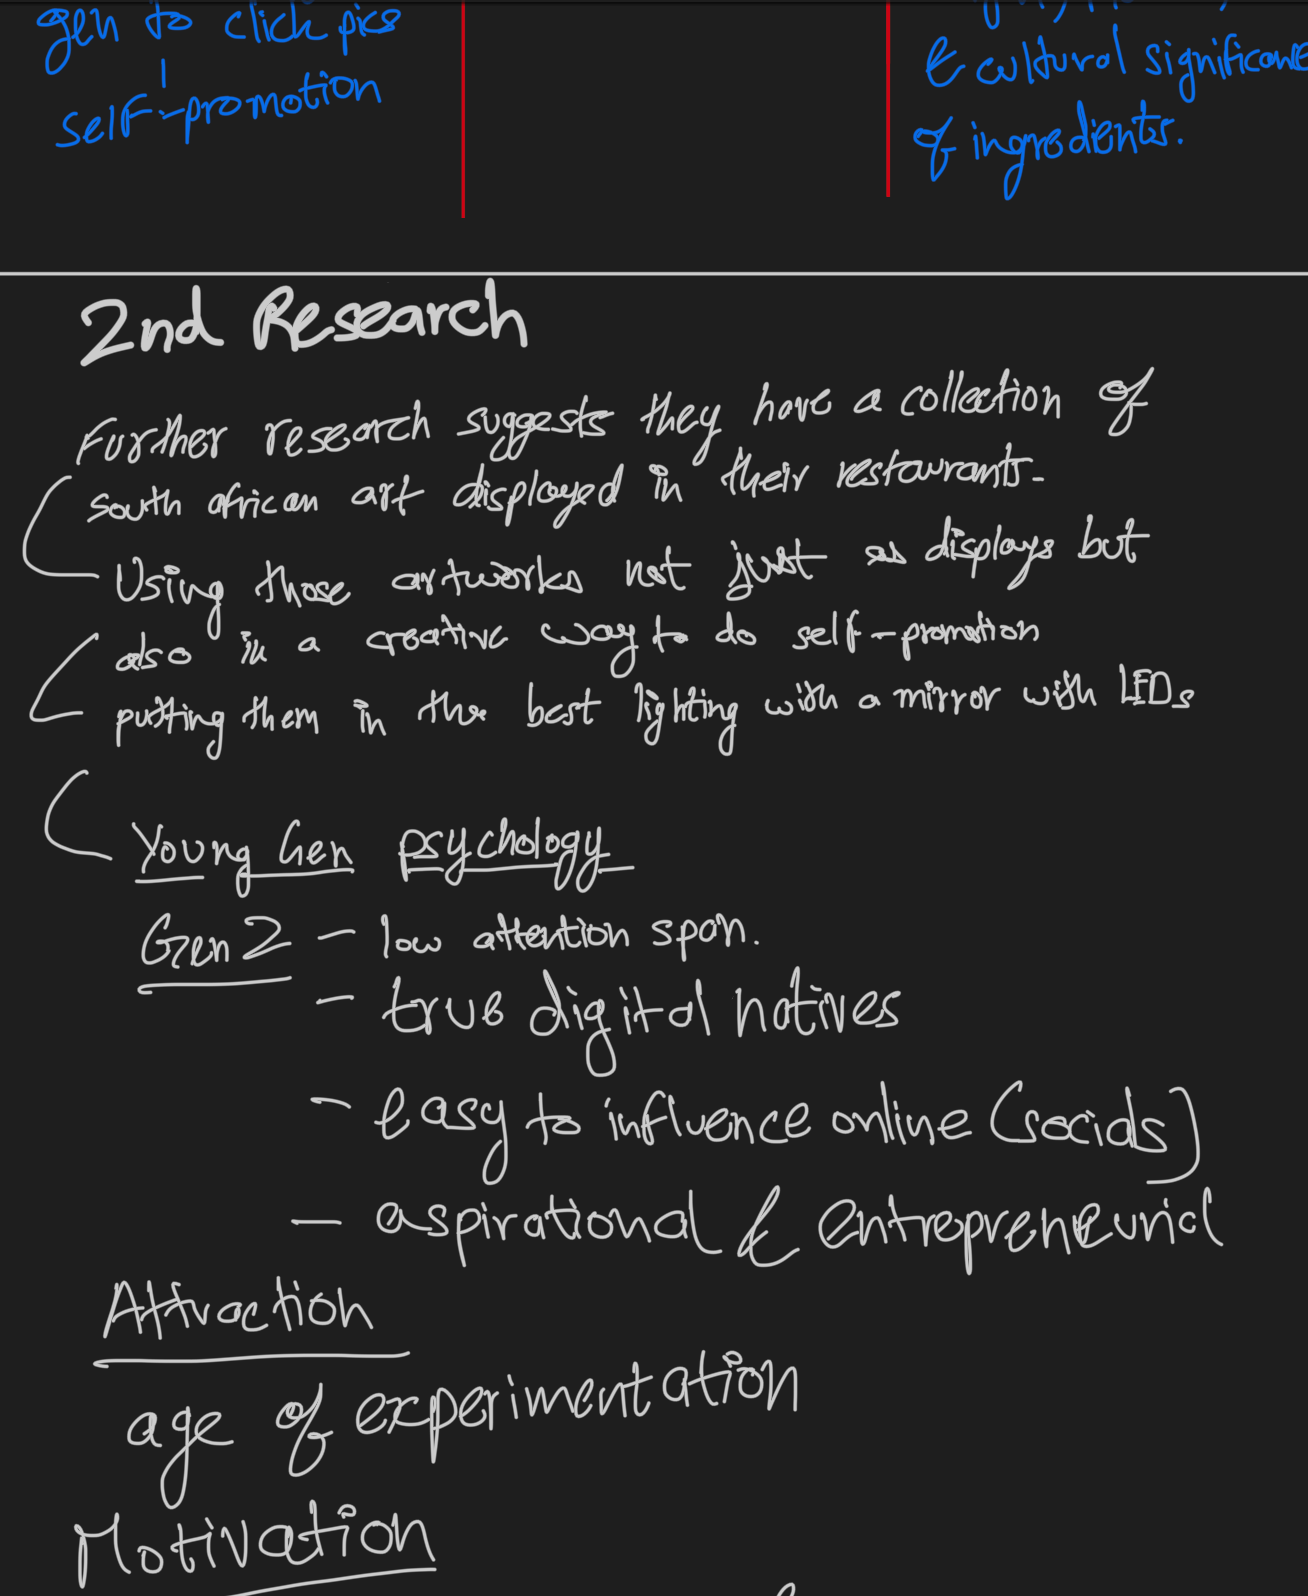 gen to click pics
self-promotion
& cultural significance
of ingredients.
2nd Research
Further research suggests they have a collection of
south african art displayed in their restaurants-
Using those artworks not just as displays but
also in a creative way to do self-promotion
putting them in the best lighting with a mirror with LEDs
Young Gen psychology
Gen Z - low attention span.
- true digital natives
- easy to influence online (socials)
- aspirational & entrepreneurial
Attraction
age of experimentation
Motivation